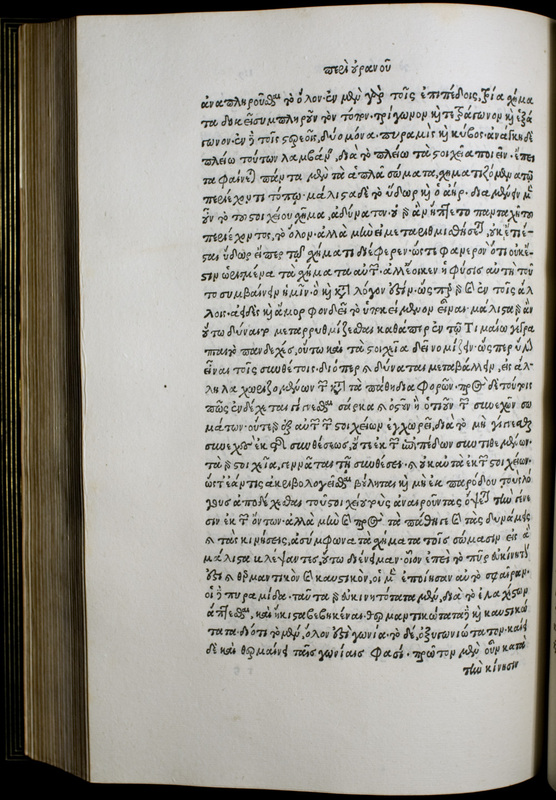 περὶ οὐρανοῦ
ἀναπληροῦσθαι τὸ ὅλον. ἐν μὲν γὰρ τοῖς ἐπιπέδοις, τρία σχήμα
τα δοκεῖ συμπληροῦν τὸν τόπον. τρίγωνον καὶ τετράγωνον καὶ ἑξά
γωνον. ἐν δὲ τοῖς στερεοῖς, δύο μόνα. πυραμὶς καὶ κύβος. ἀνάγκη δὲ
πλείω τούτων λαμβάνειν, διὰ τὸ πλείω τὰ στοιχεῖα ποιεῖν. ἔπει
τα φαίνεται πάντα μὲν τὰ ἁπλᾶ σώματα, σχηματιζόμενα τῷ
περιέχοντι τόπῳ. μάλιστα δὲ τὸ ὕδωρ καὶ ὁ ἀήρ. διαμένειν μὲν
οὖν τὸ τοῦ στοιχείου σχῆμα, ἀδύνατον. οὐ γὰρ ἂν ἥπτετο πανταχῆ τοῦ
περιέχοντος, τὸ ὅλον. ἀλλὰ μὴν εἰ μεταῤῥυθμισθήσεται, οὐκέτι ἔ
σται ὕδωρ εἴπερ τῷ σχήματι διέφερεν. ὥστε φανερὸν ὅτι οὐκ ἔ
στιν ὡρισμένα τὰ σχήματα αὐτῶν. ἀλλ' ἔοικεν ἡ φύσις αὐτὴ τοῦ
το συμβαίνειν ἡμῖν. ὃ καὶ κατὰ λόγον ἐστίν. ὥσπερ γὰρ καὶ ἐν τοῖς ἄλ
λοις. ἀειδὲς καὶ ἄμορφον δεῖ τὸ ὑποκείμενον εἶναι. μάλιστα γὰρ ἂν
οὕτω δύναιτο μεταῤῥυθμίζεσθαι καθάπερ ἐν τῷ Τιμαίῳ γέγρα
πται τὸ πανδεχές, οὕτω καὶ τὰ στοιχεῖα δεῖ νομίζειν. ὥσπερ ὕλην
εἶναι τοῖς συνθέτοις. διόπερ καὶ δύναται μεταβάλλειν, εἰς ἄλ
ληλα χωριζομένων τῶν κατὰ τὰ πάθη διαφορῶν. πρὸς δὲ τούτοις
πῶς ἐνδέχεται γίνεσθαι σάρκα καὶ ὀστοῦν ἢ ὁτιοῦν τῶν συνεχῶν σω
μάτων. οὔτε γὰρ ἐξ αὐτῶν τῶν στοιχείων ἐγχωρεῖ, διὰ τὸ μὴ γίνεσθαι
συνεχὲς ἐκ τῆς συνθέσεως, οὔτ' ἐκ τῶν ἐπιπέδων συντιθεμένων.
τὰ γὰρ στοιχεῖα, γεννᾶται τῇ συνθέσει. καὶ οὐκ αὐτὰ ἐκ τῶν στοιχείων.
ὥστ' ἐάν τις ἀκριβολογεῖσθαι βούληται καὶ μὴ ἐκ παρόδου τοὺς λό
γους ἀποδέχεσθαι τοὺς τοιούτους ἀναιροῦντας ὄψεται τὴν γένε
σιν ἐκ τῶν ὄντων. ἀλλὰ μὴν καὶ πρὸς τὰ πάθη τε καὶ τὰς δυνάμεις
καὶ τὰς κινήσεις, ἀσύμφωνα τὰ σχήματα τοῖς σώμασιν εἰς ἃ
μάλιστα βλέψαντες, οὕτω διένειμαν. οἷον ἐπεὶ τὸ πῦρ εὐκίνητόν
ἐστι καὶ θερμαντικὸν καὶ καυστικὸν, οἱ μὲν ἐποίησαν αὐτὸ σφαῖραν.
οἱ δὲ πυραμίδα. ταῦτα γὰρ εὐκινητότατα μὲν, διὰ τὸ ἐλαχίστων
ἅπτεσθαι, καὶ ἥκιστα βεβηκέναι. θερμαντικώτατα δὲ καὶ καυστικώ
τατα. διότι τὸ μὲν, ὅλον ἐστὶ γωνία. τὸ δὲ, ὀξυγωνιώτατον. καίει
δὲ καὶ θερμαίνει ταῖς γωνίαις φασί. πρῶτον μὲν οὖν κατὰ
τὴν κίνησιν